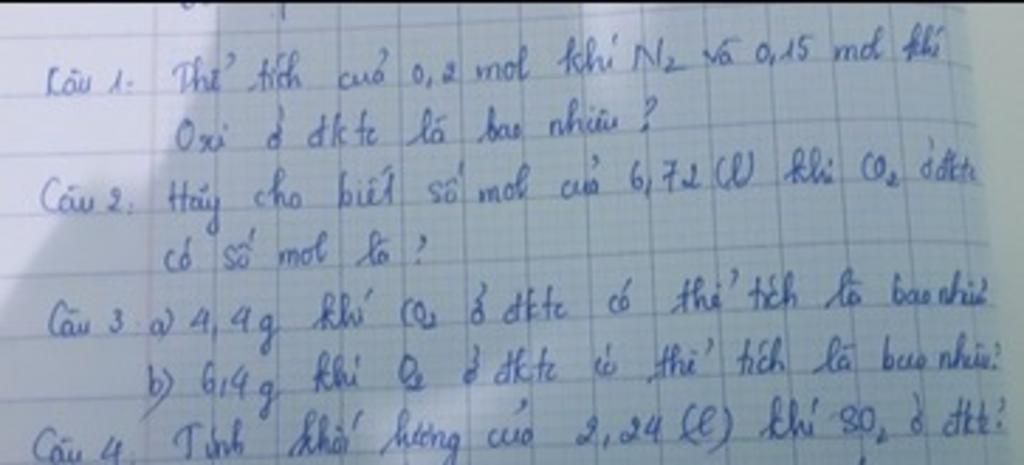 Câu 1. Thể tích của 0,2 mol khí N₂ và 0,15 mol khí
Oxi ở đktc là bao nhiêu?
Câu 2. Hãy cho biết số mol của 6,72 (l) khí CO₂ ở đktc
có số mol là?
Câu 3 a) 4,4g khí CO₂ ở đktc có thể tích là bao nhiêu?
b) 6,4g khí O₂ ở đktc có thể tích là bao nhiêu?
Câu 4. Tính khối lượng của 2,24 (l) khí SO₂ ở đktc?